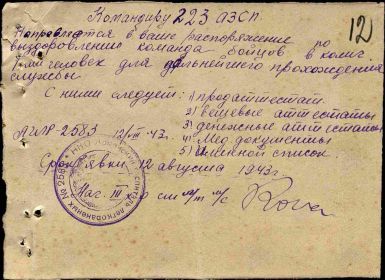 Командиру 223 АЗСП.
12
Направляется в ваше распоряжение
выздоровлению команда бойцов в колич. по
человек для дальнейшего прохождения
службы
С ними следует: 1) продаттестат
2) вещевые аттестаты
3) денежные аттестаты
АГЛР-2583 12/VIII-43. 4) Мед документы
5) Именной список
Срок явки 12 августа 1943 г
Нач. III
см м/с